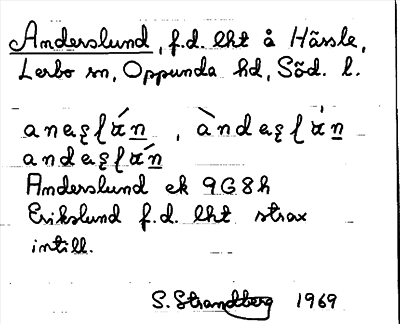 Anderslund, f.d. lht å Hässle,
Lerbo sn, Oppunda hd, Söd. l.
Anderslund ek 9G8h
Erikslund f.d. lht strax
intill.
S. Strandberg 1969